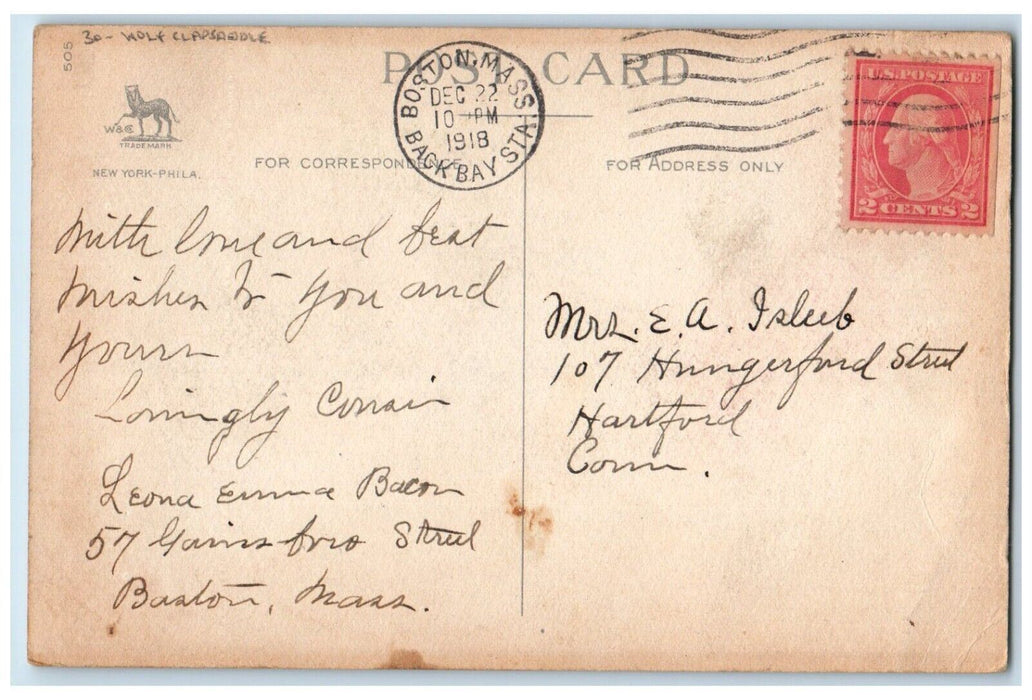 505
30- WOLF CLAPSADDLE
POST CARD
BOSTON, MASS.
DEC 22
10 PM
1918
BACK BAY STA.
U.S. POSTAGE
2 CENTS 2
W&Co
TRADE MARK
NEW YORK-PHILA.
FOR CORRESPONDENCE
FOR ADDRESS ONLY
With love and best
wishes to you and
yours
Lovingly Cousin
Leona Emma Bacon
57 Gainsboro Street
Boston, Mass.
Mrs. E. A. Isleib
107 Hungerford Street
Hartford
Conn.